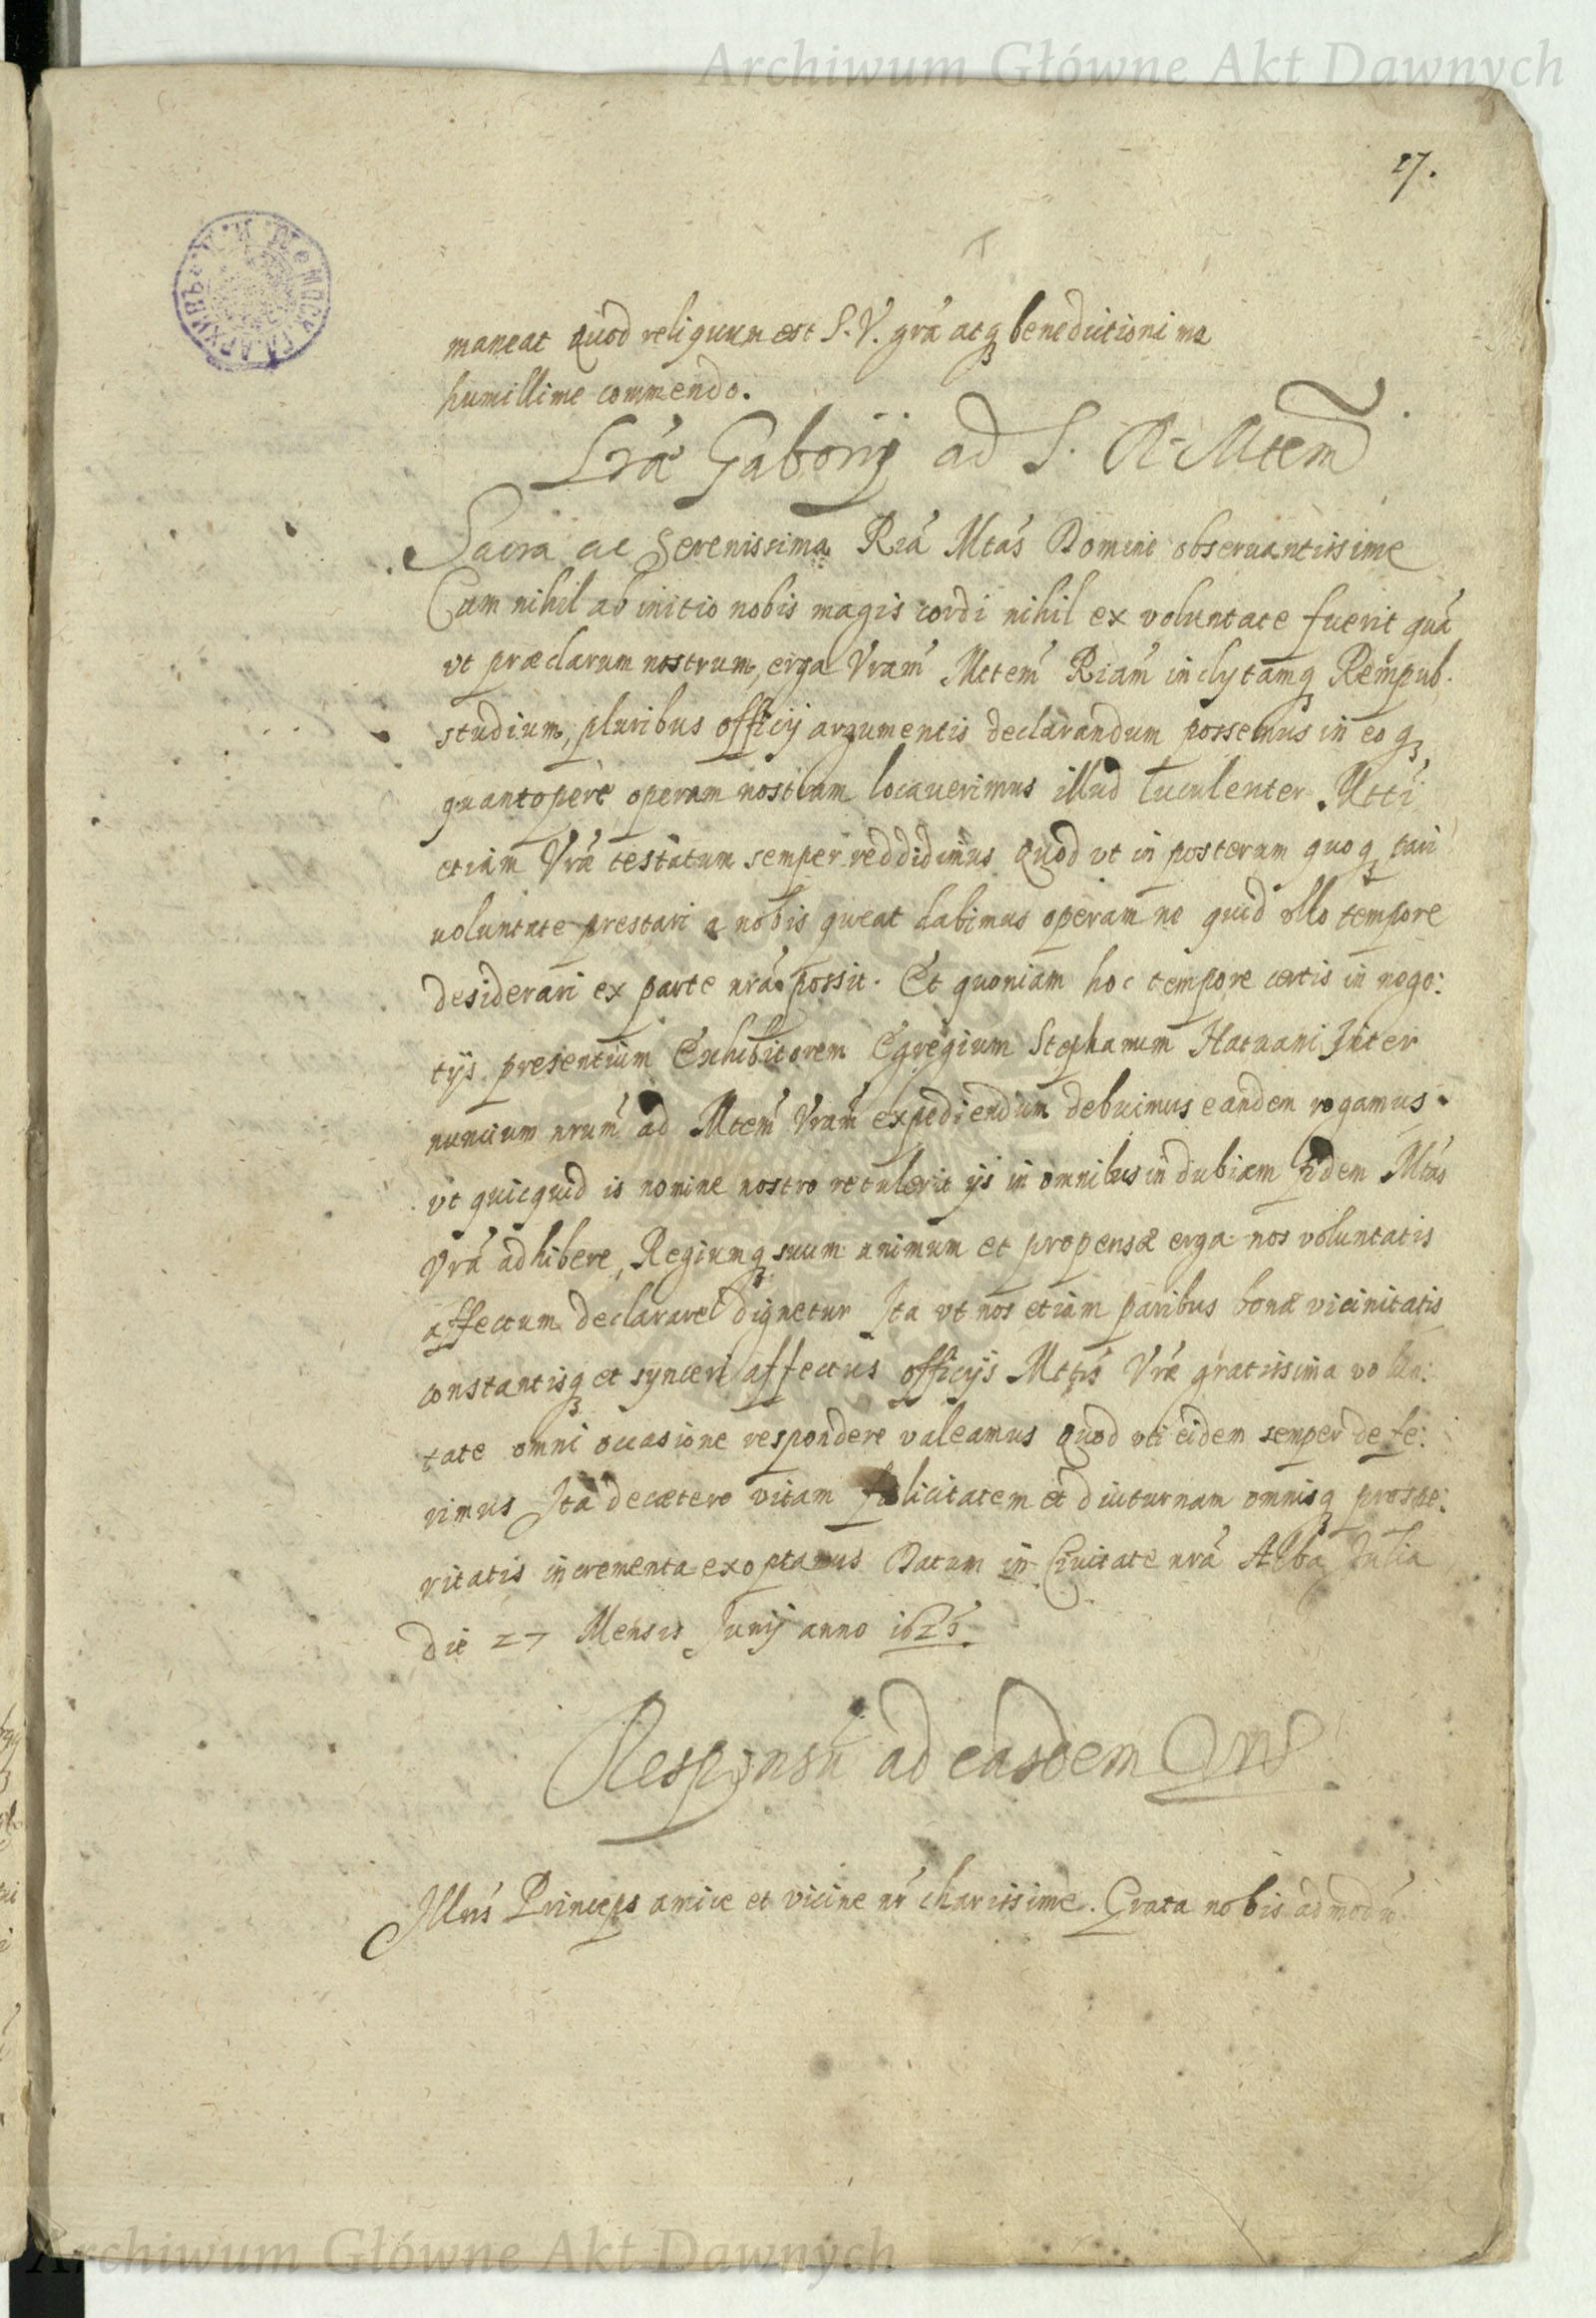 Archiwum Główne Akt Dawnych
27.
maneat Quod reliquum est S. V. grã atq benedictioni me
humillime commendo.
Lrã Gaborij ad S. R. Mtem
Sacra ac Serenissima Ria Mtas Domine obseruantissime
Cum nihil ab initio nobis magis cordi nihil ex voluntate fuerit quã
vt præclarum nostrum, erga Vram Mttem Riam inclytamq Rempub.
studium, pluribus officij argumentis declarandum possemus in eo q
quantoperè operam nostram locauerimus illud luculenter Mtti
etiam Vræ testatum semper reddidimus Quod vt in posterum quoq pari
uoluntate prestari a nobis queat dabimus operam ne quid vllo tempore
desiderari ex parte nrã possit. Et quoniam hoc tempore certis in nego:
tijs presentium Exhibitorem Egregium Stephanum Hatuani Inter
nuncium nrum ad Mtem Vram expediendum debuimus eandem rogamus
vt quicquid is nomine nostro retulerit ijs in omnibus indubiam fidem Mtas
Vrã adhibere, Regiumq suum animum et propensæ erga nos voluntatis
affectum declarare dignetur Ita vt nos etiam paribus bonæ vicinitatis
constantisq et synceri affectus officijs Mttis Vræ gratissima volun:
tate omni occasione respondere valeamus Quod vti eidem semper defe:
rimus Ita decætero vitam felicitatem et diuturnam omnisq prospe:
ritatis incrementa exoptamus Datum in Ciuitate nrã Alba Julia
die 27 Mensis Junij anno 1625.
Responsũ ad easdem
Illris Princeps amice et vicine nr charissime. Grata nobis admodũ
Archiwum Główne Akt Dawnych